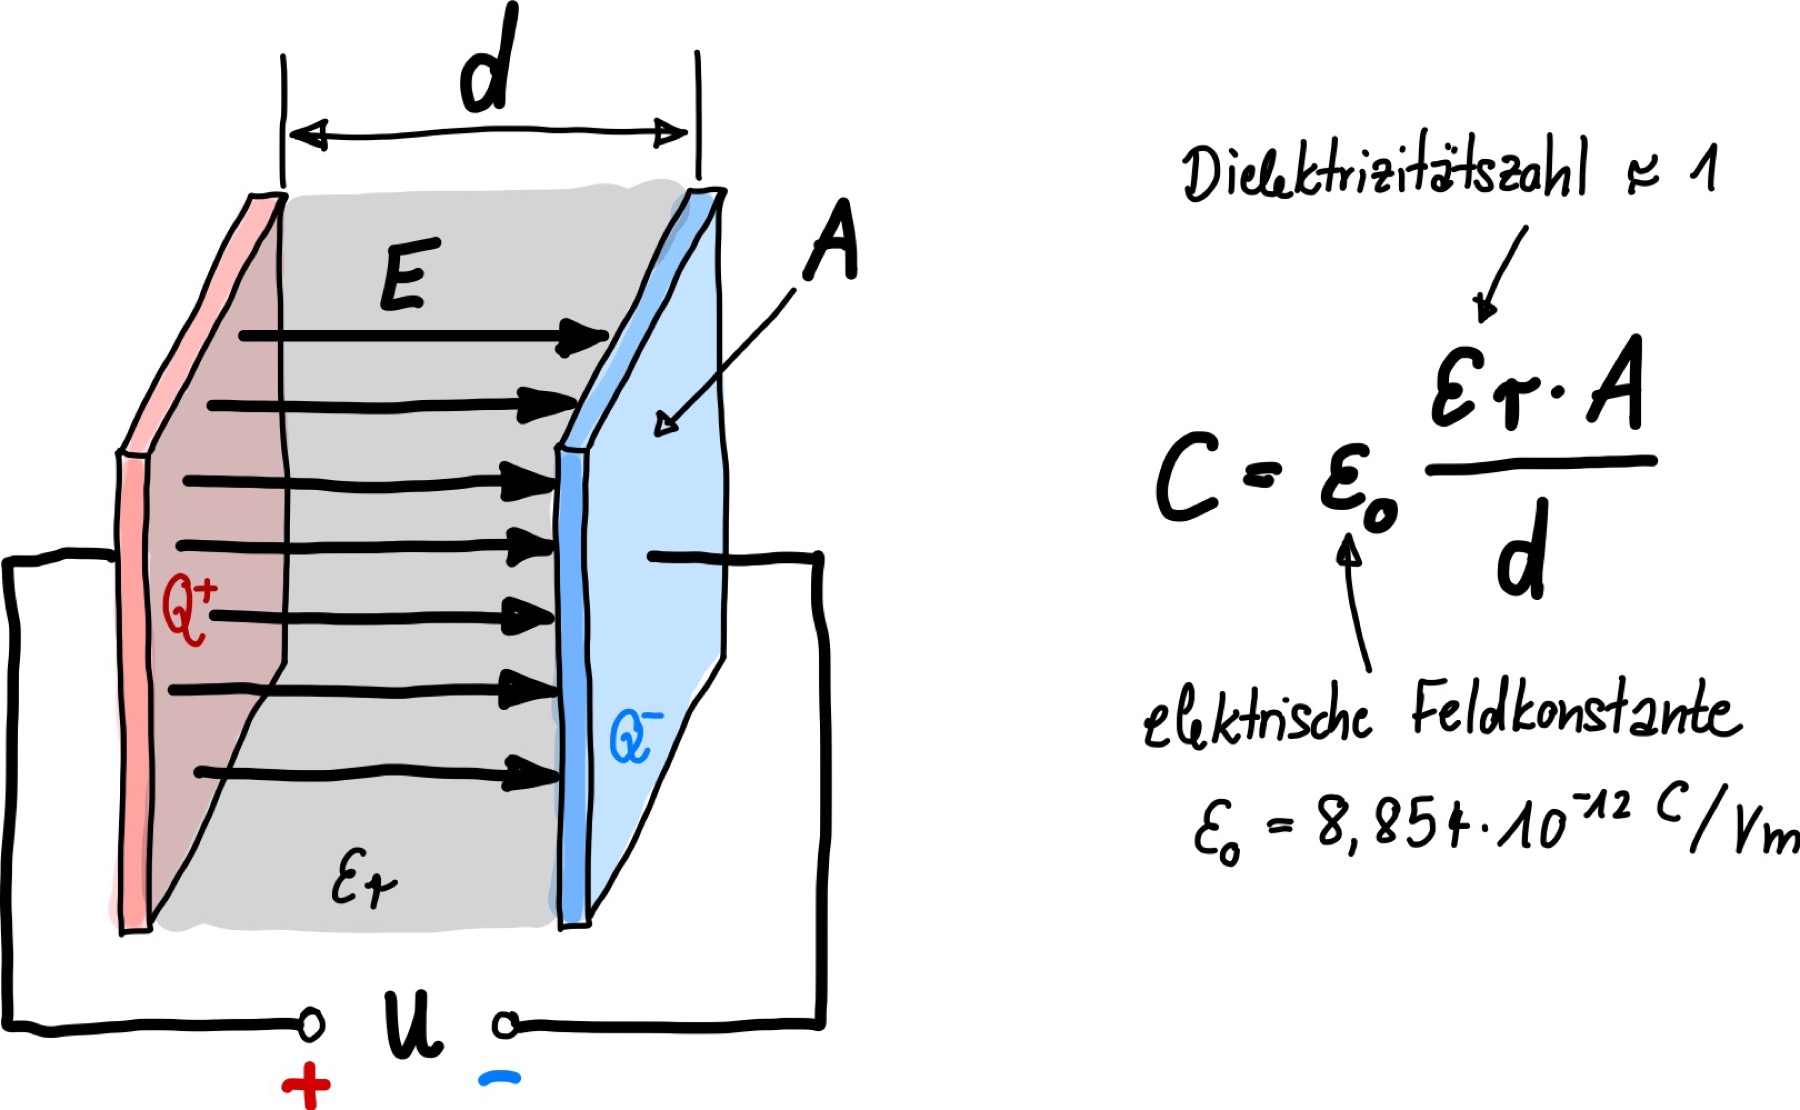 d
E
A
Q⁺
Q⁻
εr
U
+ −
Dielektrizitätszahl ≈ 1
C = ε₀ εr · A / d
elektrische Feldkonstante
ε₀ = 8,854 · 10⁻¹² C/Vm